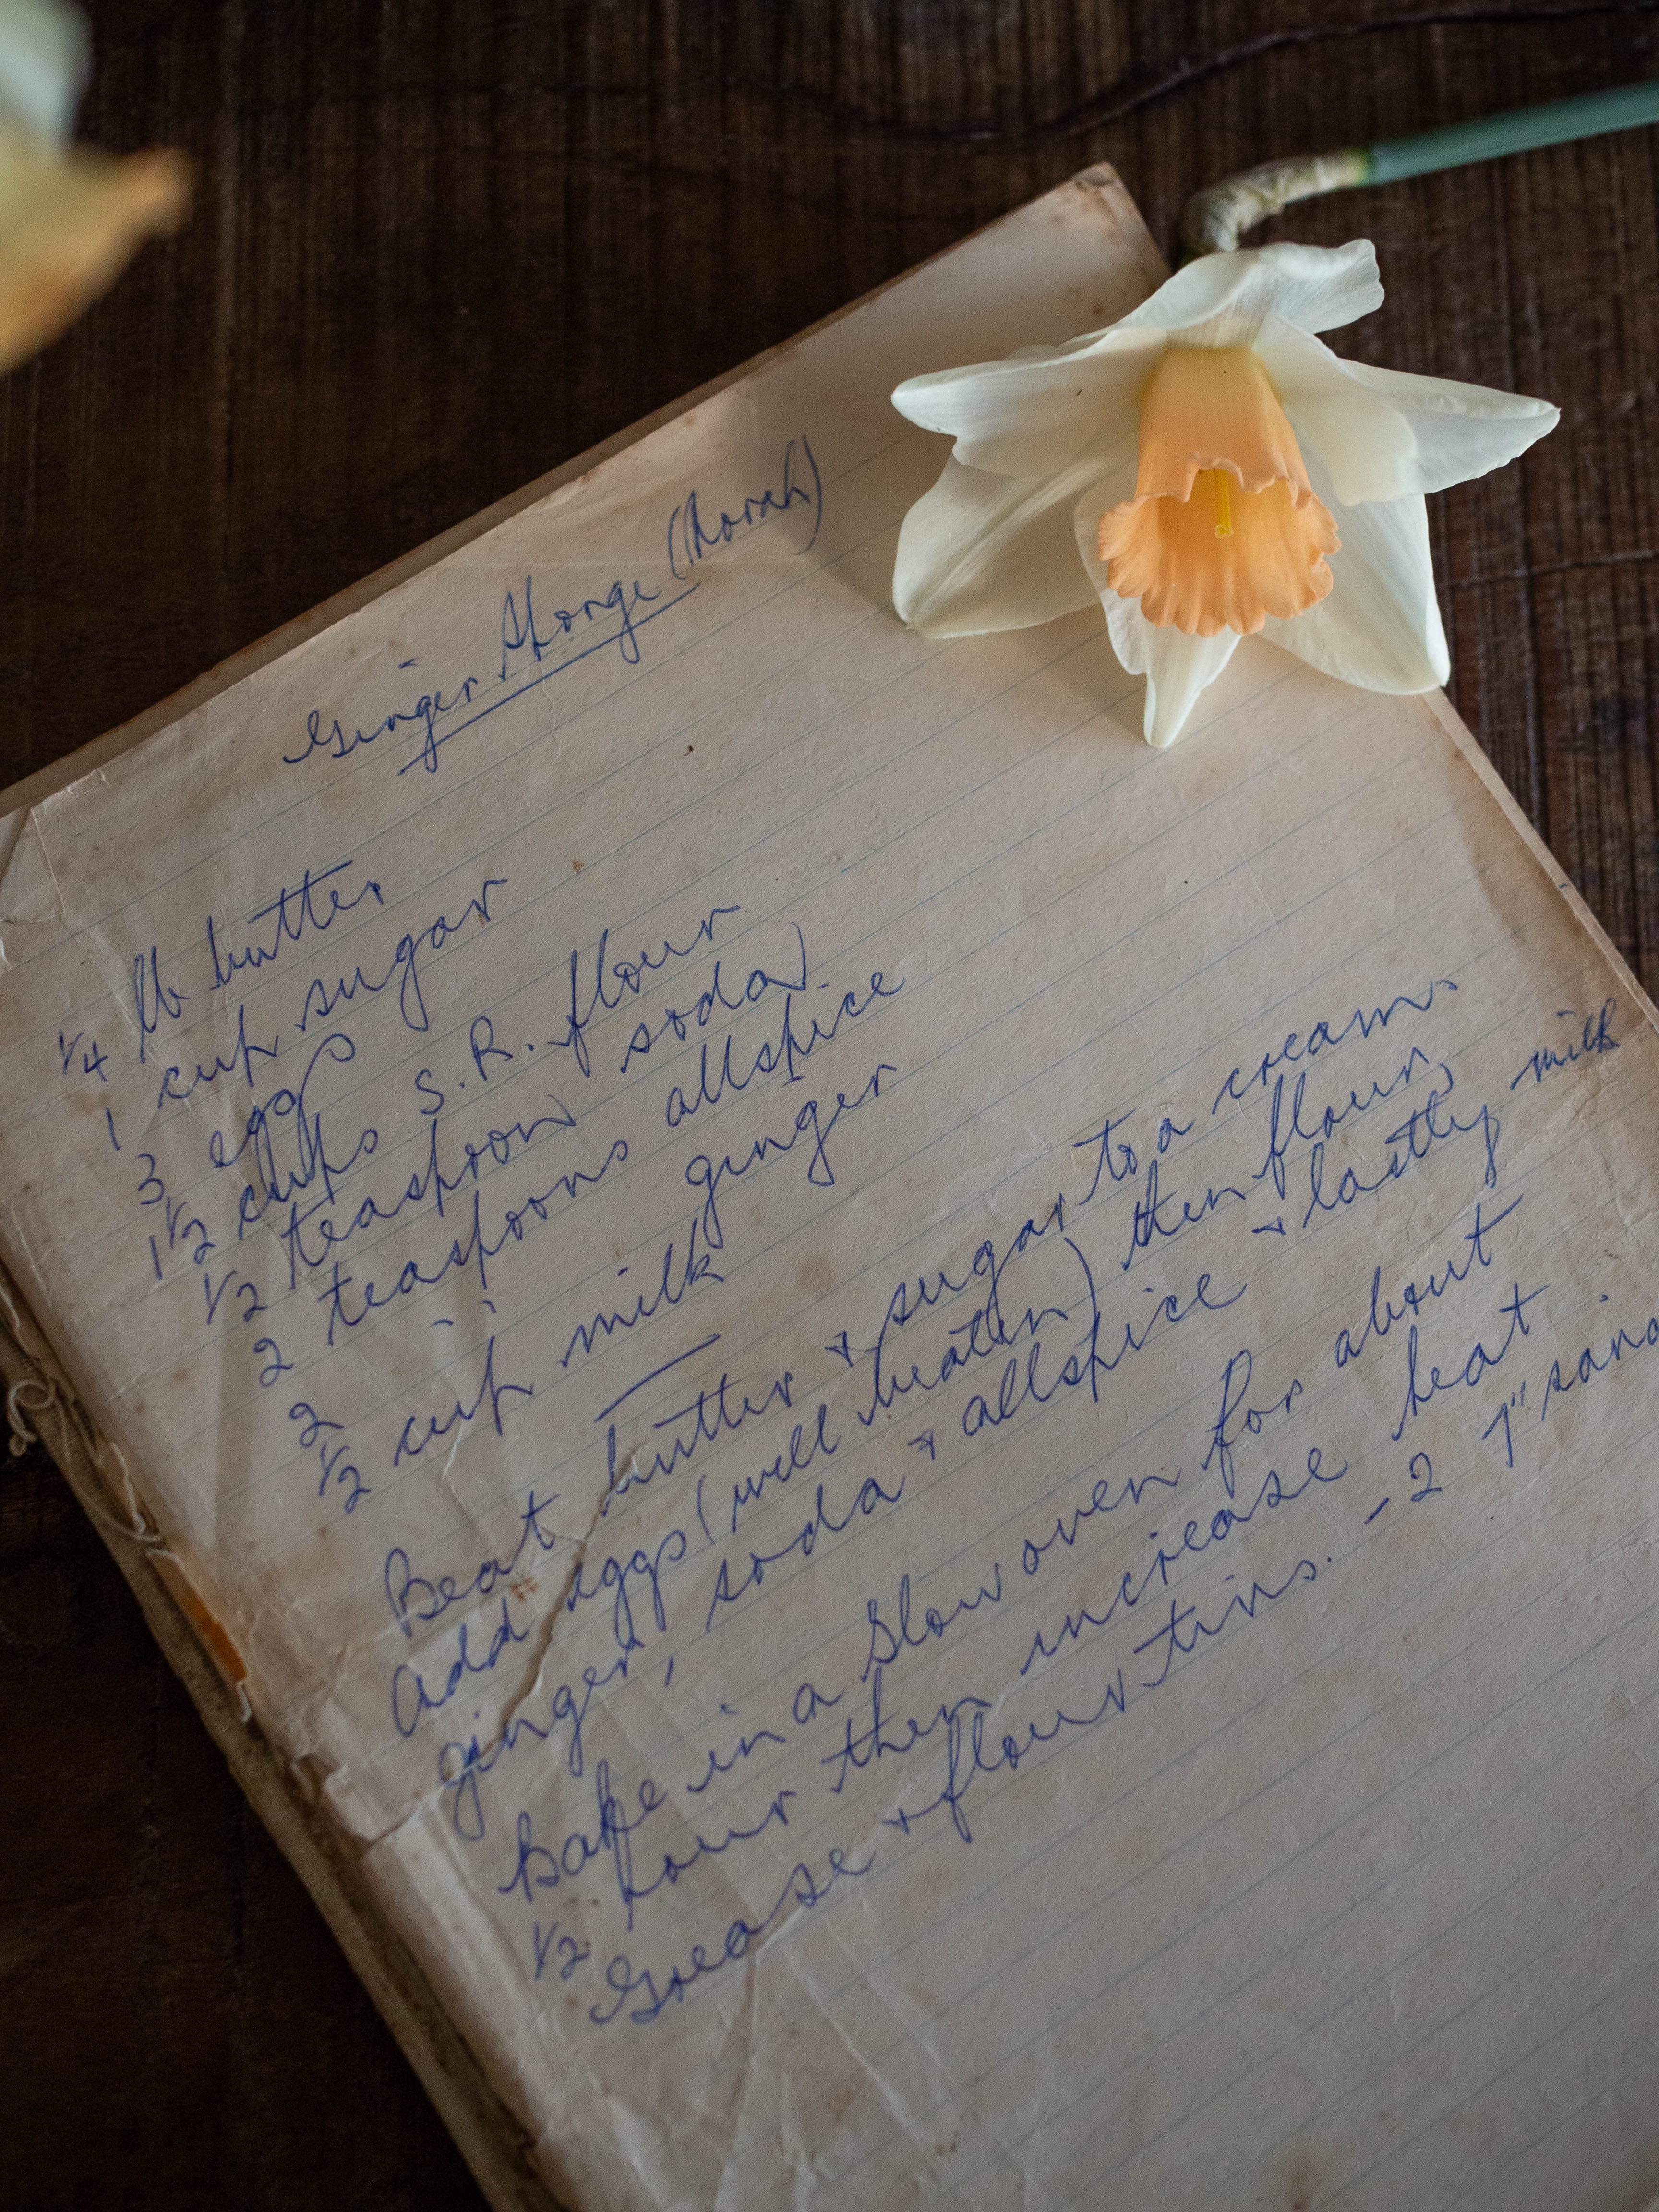 Ginger Sponge (Norah)
1/4 lb butter
1 cup sugar
3 eggs
1 1/2 cups S.R. flour
1/2 teaspoon soda
2 teaspoons allspice
2 " ginger
1/2 cup milk
Beat butter + sugar to a cream.
Add eggs (well beaten) then flour,
ginger, soda + allspice + lastly milk
Bake in a slow oven for about
1/2 hour then increase heat
Grease + flour tins. - 2 7"